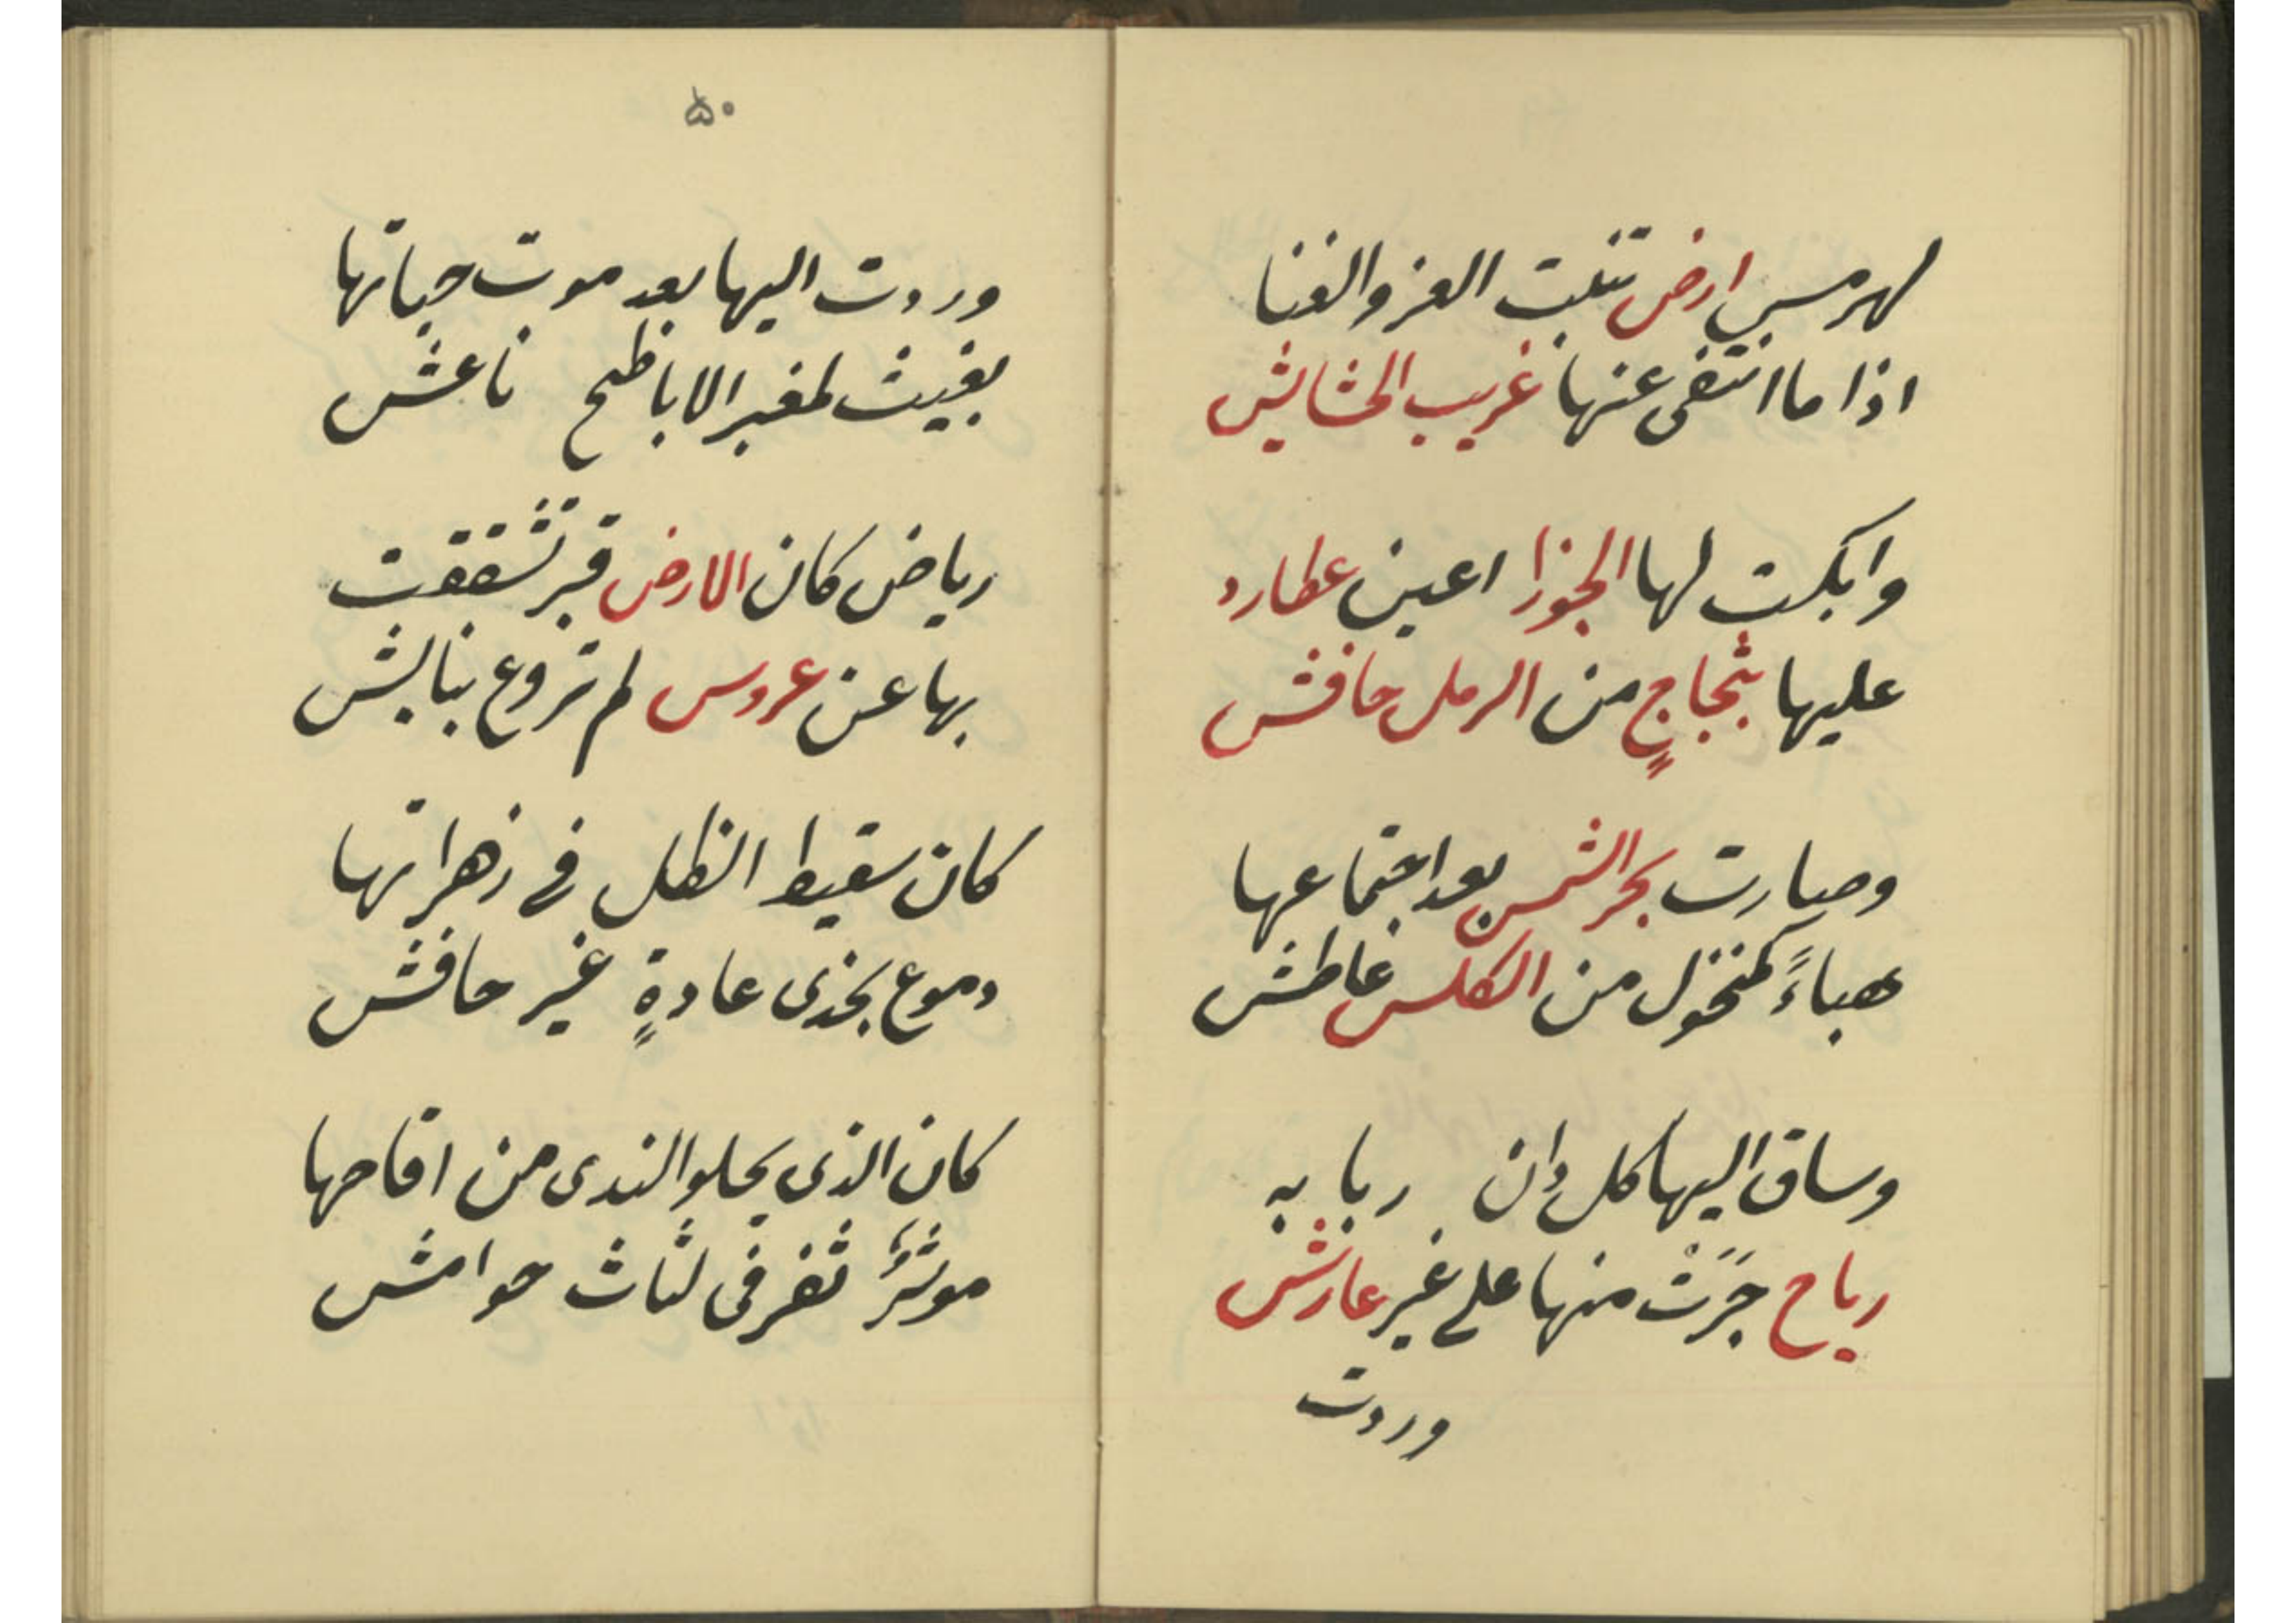 لهرمس ارض تنبت العز والغنا
اذا ما انتفى عنها غريب الحشايش
وابكت لها الجوزا اعين عطارد
عليها بثجاجٍ من الرمل حافش
وصارت بحر الشمس بعد اجتماعها
هباءً كمنخول من الكلس غاطش
وساق اليها كل دان ربابه
رياح جَرَتْ منها على غير عارش
وردت
۵۰
وردت اليها بعد موت حياتها
بغيث لمغبر الاباطح ناعش
رياض كان الارض قبر تشققت
بها عن عروس لم تروع بنابش
كان سقيط الظل في زهراتها
دموع بخدى غادةٍ غير حافش
كان الذى يجلو الندى من اقاحها
موشرُ ثغر فى لثاث حوامش